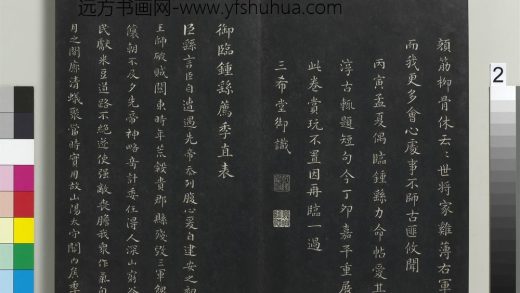 远方书画网-www.yfshuhua.com
2
顏筋柳骨休去〻世將家雞薄右軍
而我更多會心處事不師古匪攸聞
丙寅孟夏偶臨鍾繇力命帖愛其
淳古輒題短句今丁卯嘉平重展
此卷賞玩不置因再臨一過
三希堂御識
御臨鍾繇薦季直表
臣繇言臣自遭遇先帝忝列腹心爰自建安之初
王師破賊關東時年荒穀貴郡縣殘毀三軍餽
饟朝不及夕先帝神略奇計委任得人深山窮谷
民獻米豆道路不絕遂使強敵喪膽我眾作氣旬
月之間廓清蟻聚當時實用故山陽太守關內侯季